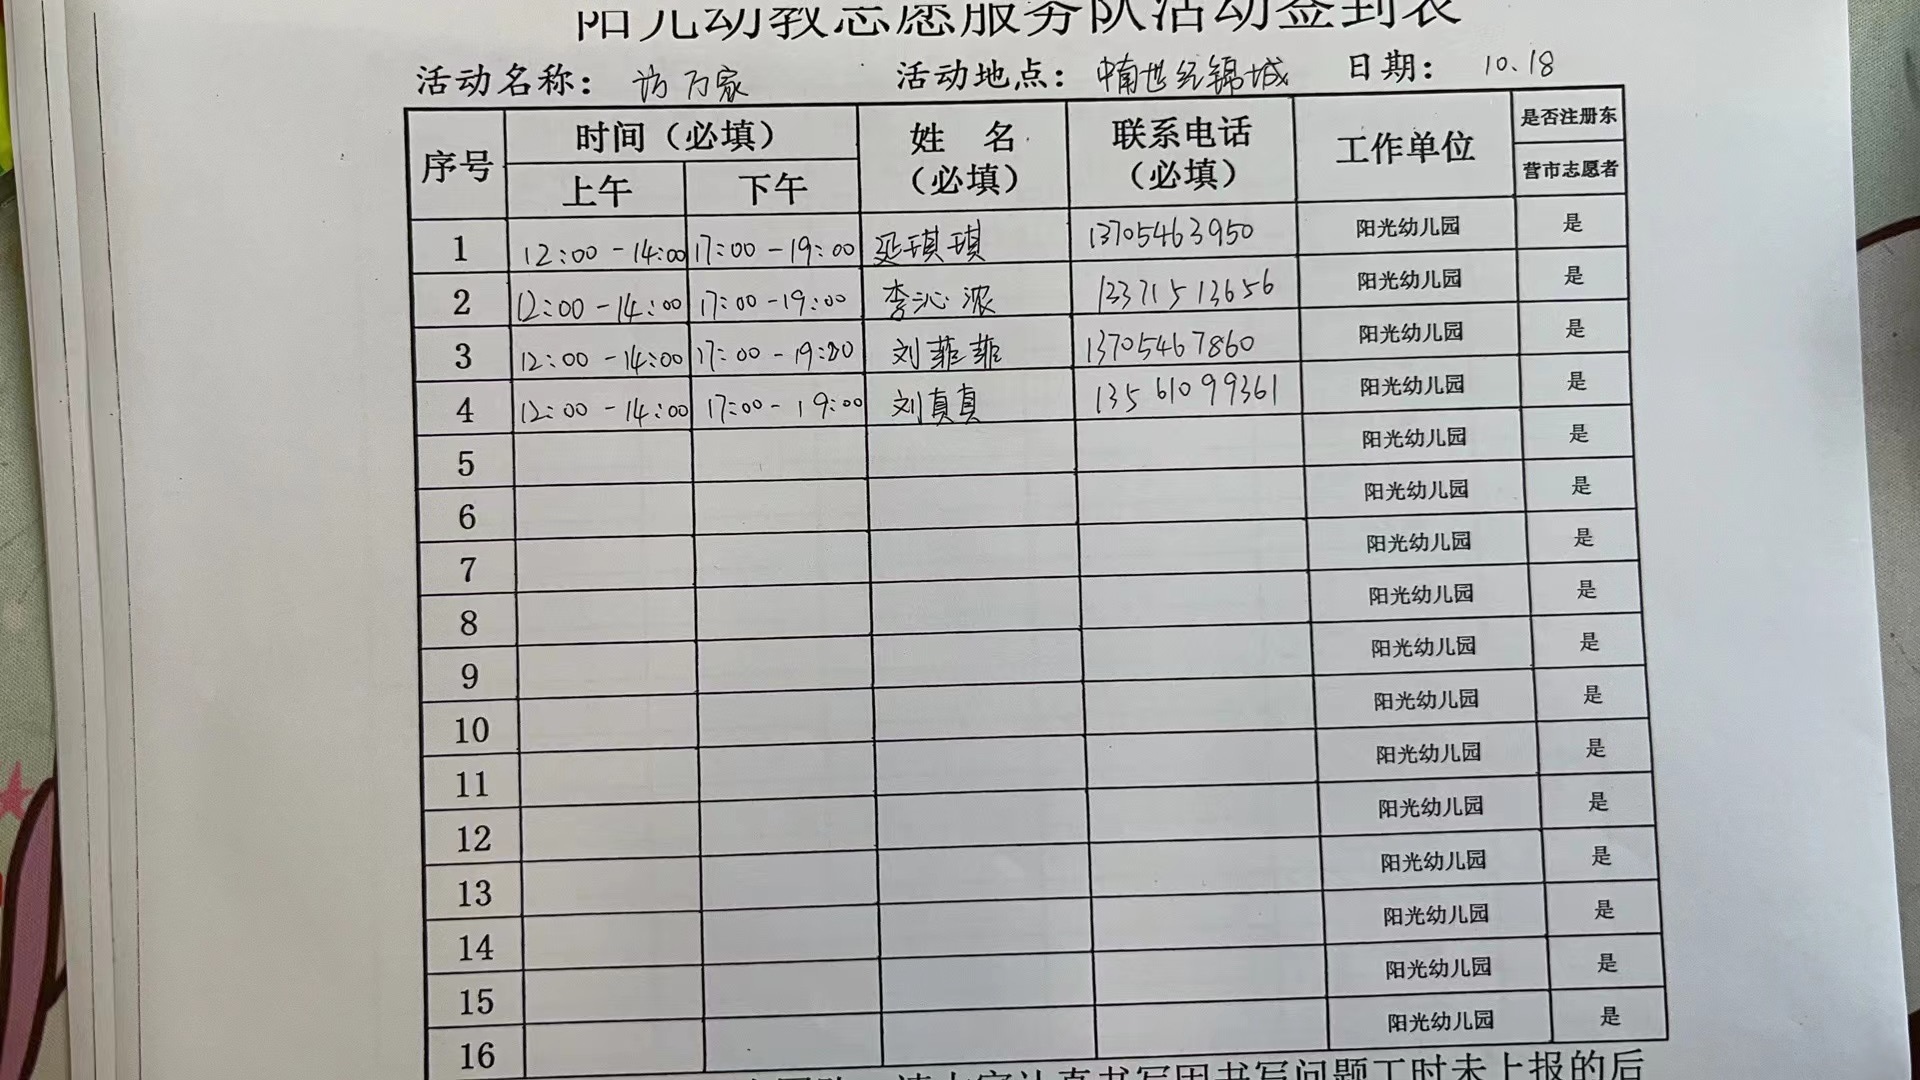 阳光幼教志愿服务队活动签到表
活动名称： 访万家 活动地点： 中南世纪锦城 日期： 10.18
序号 时间（必填） 上午 下午 姓 名（必填） 联系电话（必填） 工作单位 是否注册东营市志愿者
1 12:00-14:00 17:00-19:00 延琪琪 13705463950 阳光幼儿园 是
2 12:00-14:00 17:00-19:00 李沁浓 13371513656 阳光幼儿园 是
3 12:00-14:00 17:00-19:00 刘菲菲 13705467860 阳光幼儿园 是
4 12:00-14:00 17:00-19:00 刘真真 13561099361 阳光幼儿园 是
5 阳光幼儿园 是
6 阳光幼儿园 是
7 阳光幼儿园 是
8 阳光幼儿园 是
9 阳光幼儿园 是
10 阳光幼儿园 是
11 阳光幼儿园 是
12 阳光幼儿园 是
13 阳光幼儿园 是
14 阳光幼儿园 是
15 阳光幼儿园 是
16 阳光幼儿园 是
请大家认真书写因书写问题工时未上报的后